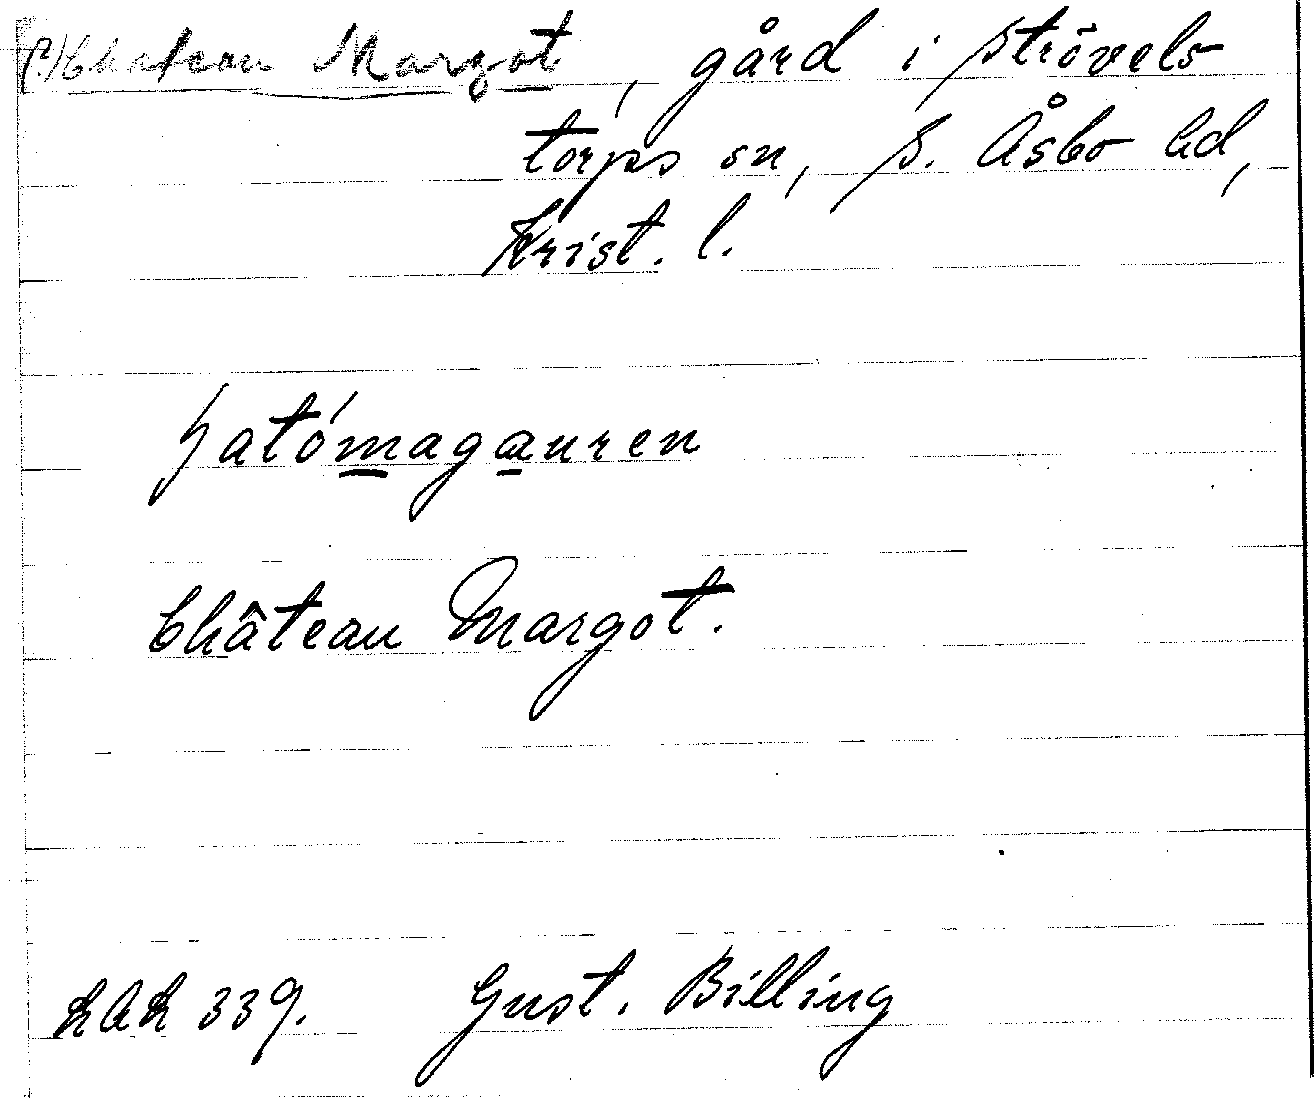 (?) Chateau Margot, gård i Strövels
torps sn, S. Åsbo hd,
Krist. l.
ʃatómagauren
Château Margot.
LAL 339. Gust. Billing